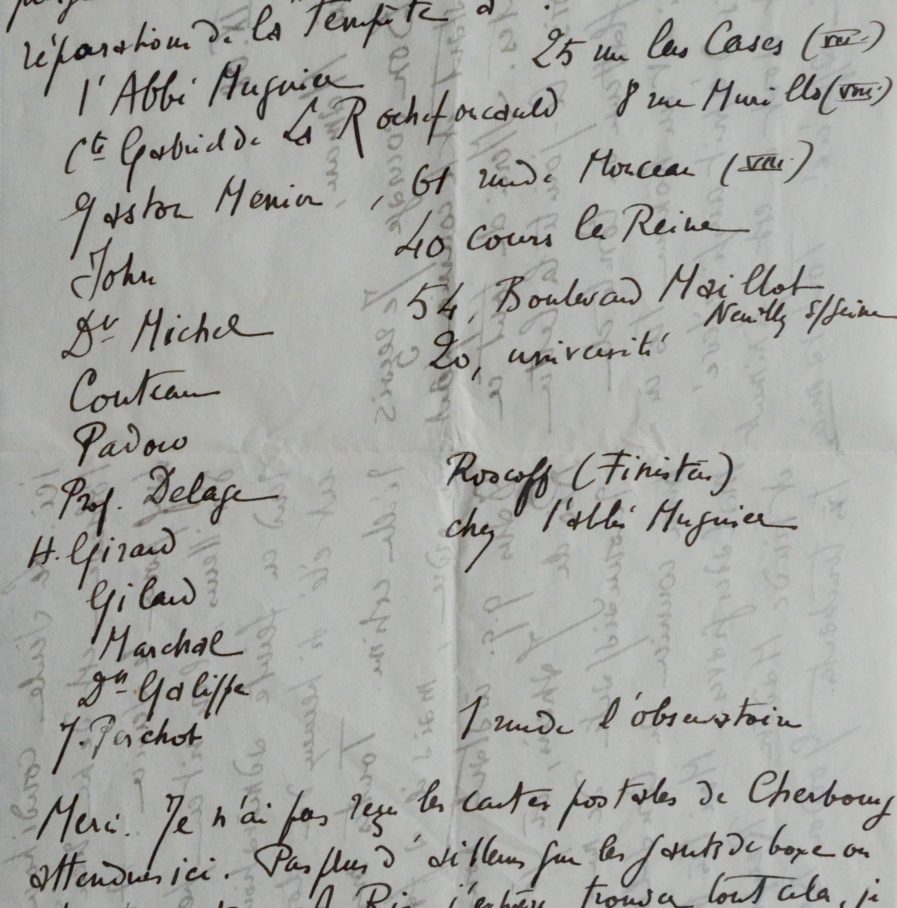 réparations de la Tempête
l'Abbé Mugnier 25 rue las Cases (VII)
Cte Gabriel de La Rochefoucauld 8 rue Murillo (VIII)
Gaston Menier, 61 rue de Monceau (VIII)
John 40 cours la Reine
Dr Michel 54, Boulevard Maillot
Neuilly s/seine
Couteau 20, université
Padow
Prof. Delage Roscoff (Finistère)
H. Girard chez l'abbé Mugnier
Gilard
Marchal
Dr Galippe
J. Perchot 1 rue de l'observatoire
Merci. Je n'ai pas reçu les cartes postales de Cherbourg
attendues ici. Pas plus d'ailleurs que les gants de boxe ou
j'espère trouver tout cela, je